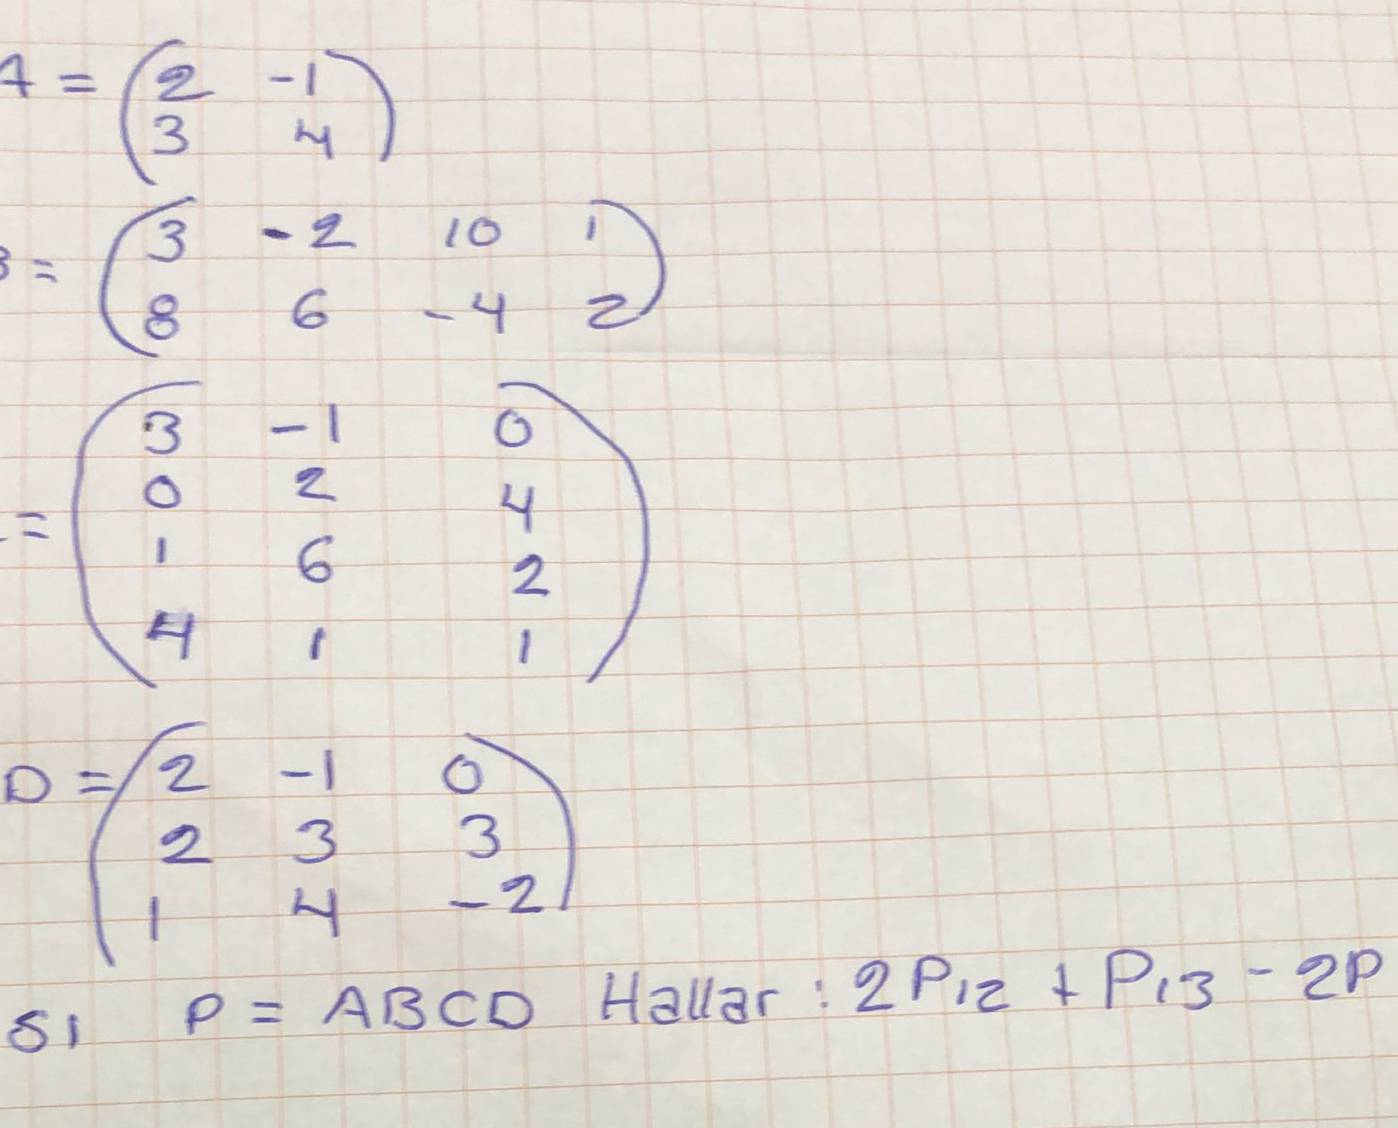 A = (2 -1
3 4)
B = (3 -2 10 1
8 6 -4 2)
= (3 -1 0
0 2 4
1 6 2
4 1 1)
D = (2 -1 0
2 3 3
1 4 -2)
Si P = ABCD Hallar : 2P12 + P13 - 2P